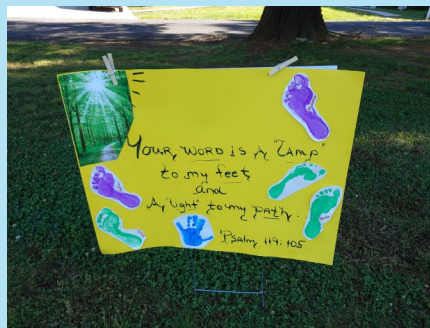 Your word is A "Lamp"
to my feet
and
A "light" to my path.
Psalm 119:105